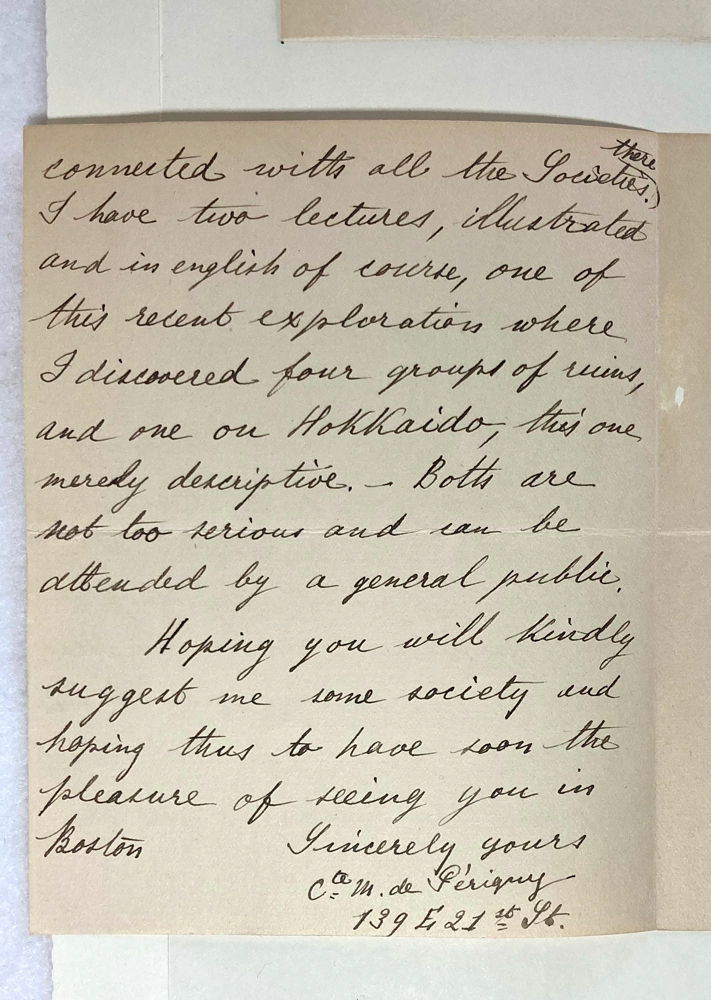 connected with all the Societies there.)
I have two lectures, illustrated
and in english of course, one of
this recent exploration where
I discovered four groups of ruins,
and one on Hokkaido, this one
merely descriptive. – Both are
not too serious and can be
attended by a general public.
Hoping you will kindly
suggest me some society and
hoping thus to have soon the
pleasure of seeing you in
Boston Sincerely yours
Cte M. de Périgny
139 E 21st St.